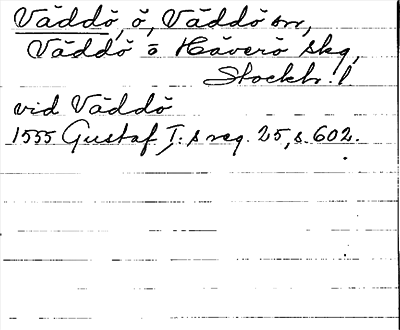 Väddö, ö, Väddö sn,
Väddö o Häverö skg,
Stockh. l.
vid Väddö
1555 Gustaf I: s reg. 25, s. 602.